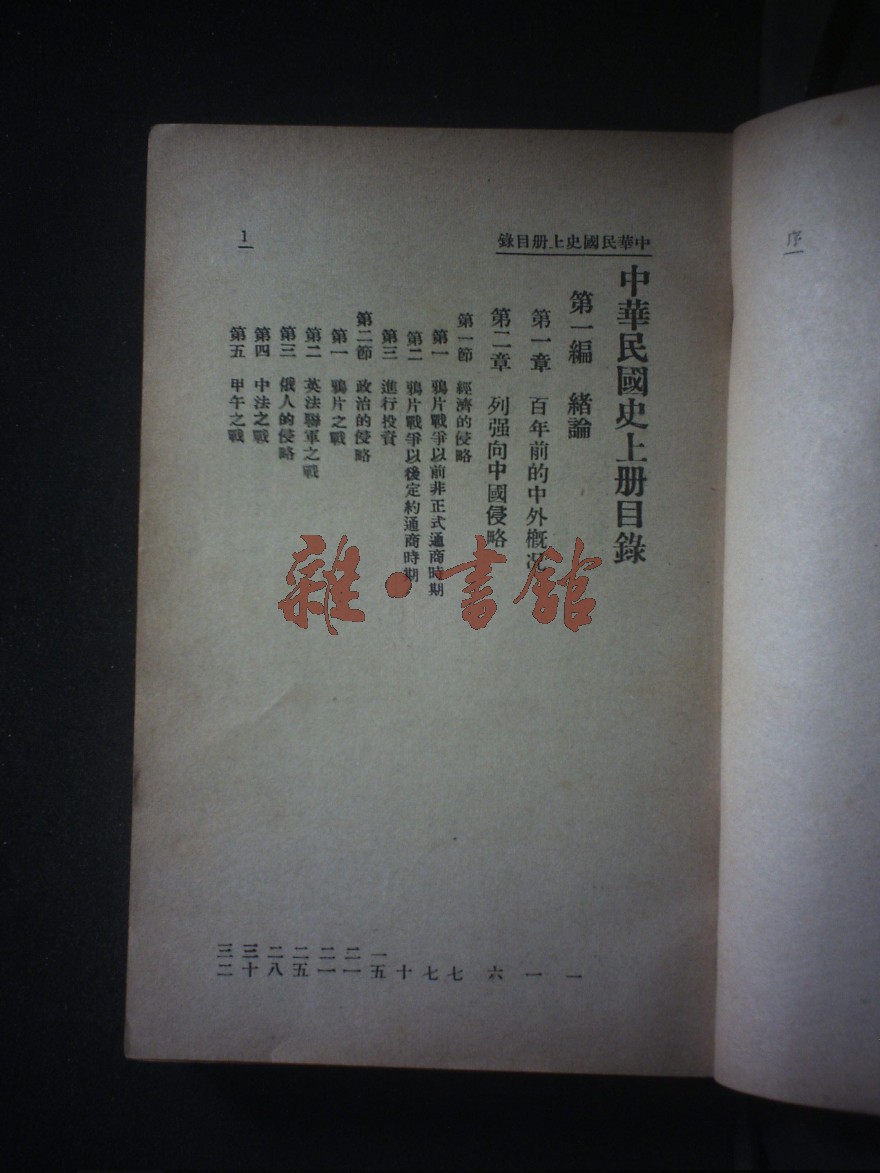 序
中華民國史上册目錄
中華民國史上册目錄
第一編 緒論 一
第一章 百年前的中外概況 一
第二章 列强向中國侵略 六
第一節 經濟的侵略 七
第一 鴉片戰爭以前非正式通商時期 七
第二 鴉片戰爭以後定約通商時期 十
第三 進行投資 一五
第二節 政治的侵略 二一
第一 鴉片之戰 二一
第二 英法聯軍之戰 二五
第三 俄人的侵略 二八
第四 中法之戰 三十
第五 甲午之戰 三二
1
雜·書館